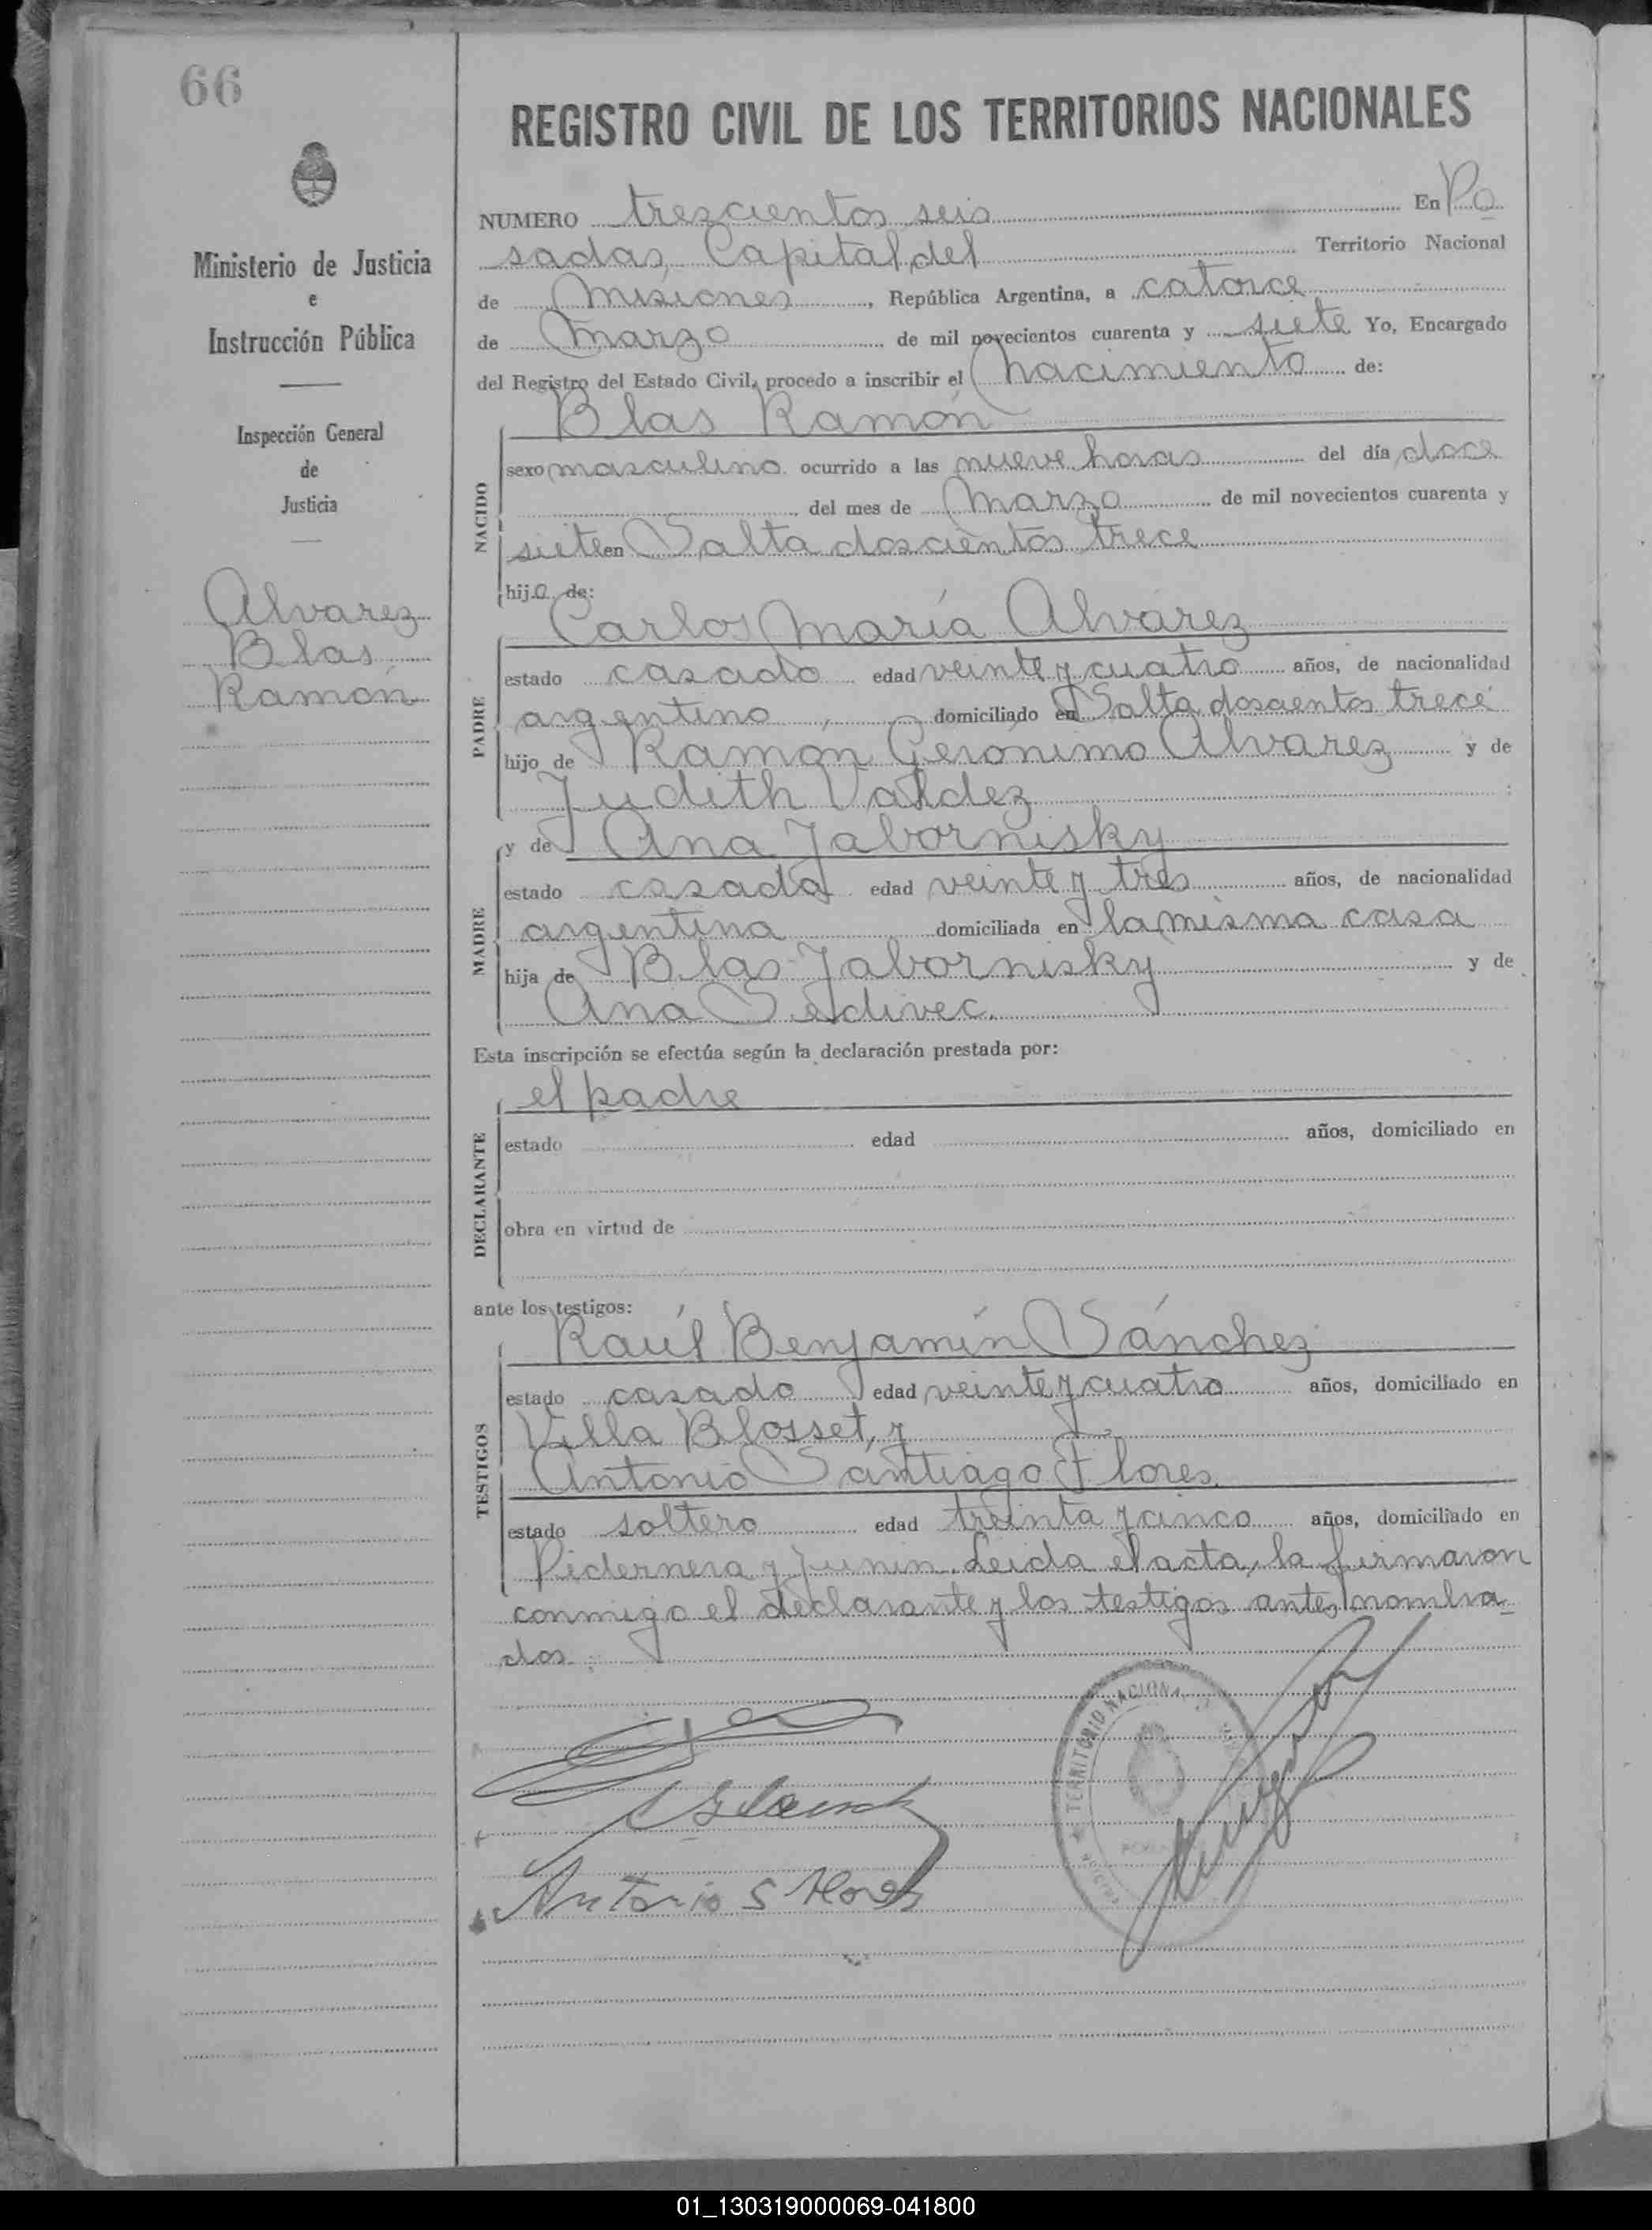 66
Ministerio de Justicia
e
Instrucción Pública
Inspección General
de
Justicia
Alvarez
Blas
Ramón
REGISTRO CIVIL DE LOS TERRITORIOS NACIONALES
NUMERO trescientos seis En Po
sadas, Capital del Territorio Nacional
de Misiones, República Argentina, a catorce
de Marzo de mil novecientos cuarenta y siete Yo, Encargado
del Registro del Estado Civil, procedo a inscribir el nacimiento de:
NACIDO
Blas Ramón
sexo masculino ocurrido a las nueve horas del día doce
del mes de Marzo de mil novecientos cuarenta y
siete en Salta doscientos trece
hijo de:
PADRE
Carlos María Alvarez
estado casado edad veinte y cuatro años, de nacionalidad
argentino, domiciliado en Salta doscientos trece
hijo de Ramón Gerónimo Alvarez y de
Judith Valdez
MADRE
y de Ana Jabornisky
estado casada edad veinte y tres años, de nacionalidad
argentina domiciliada en la misma casa
hija de Blas Jabornisky y de
Ana Sedivec.
Esta inscripción se efectúa según la declaración prestada por:
DECLARANTE
el padre
estado edad años, domiciliado en
obra en virtud de
ante los testigos:
TESTIGOS
Raúl Benjamín Sánchez
estado casado edad veinte y cuatro años, domiciliado en
Villa Blosset, y
Antonio Santiago Flores.
estado soltero edad treinta y cinco años, domiciliado en
Pidernera y Junin. Leida el acta, la firmaron
conmigo el declarante y los testigos antes nombra
dos.
TERRITORIO NACIONAL
Antonio S Flores
01_130319000069-041800